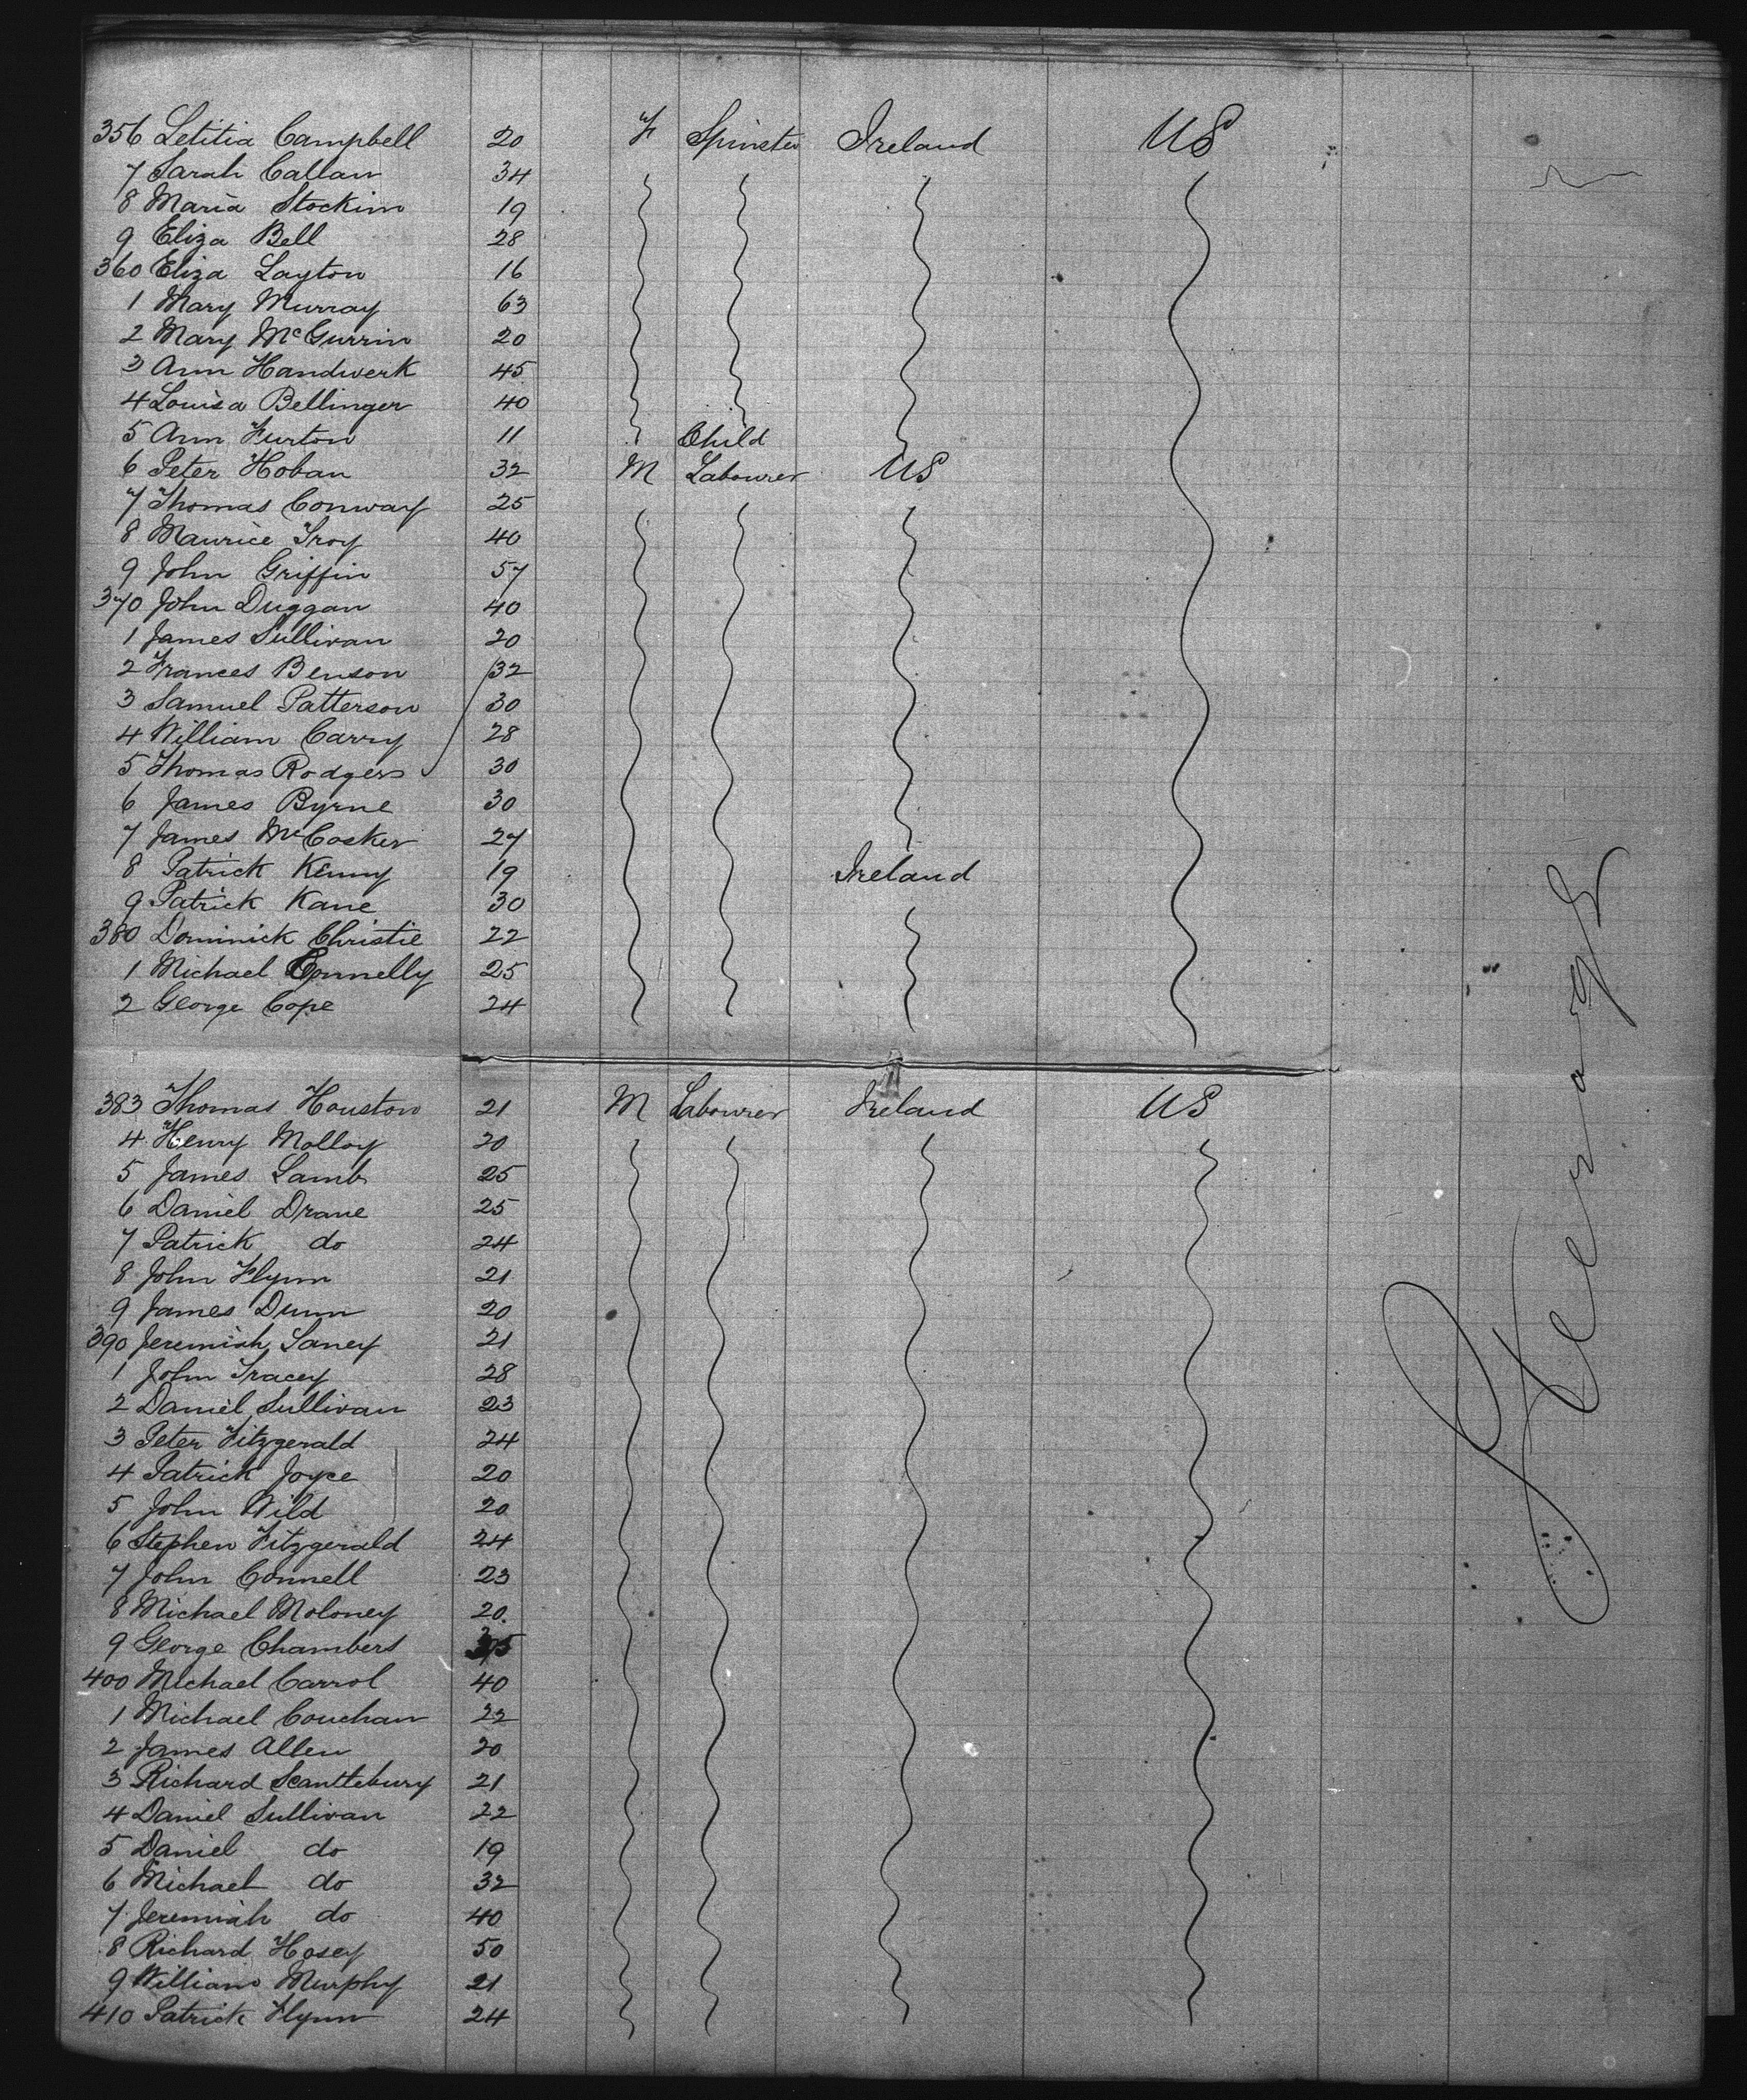 356 Letitia Campbell 20 F Spinster Ireland US
7 Sarah Callan 34
8 Maria Stockim 19
9 Eliza Bell 28
360 Eliza Layton 16
1 Mary Murray 63
2 Mary McGurrin 20
3 Ann Handwerk 45
4 Louisa Bellinger 40
5 Ann Furton 11 Child
6 Peter Hoban 32 M Labourer US
7 Thomas Conway 25
8 Maurice Troy 40
9 John Griffin 57
370 John Duggan 40
1 James Sullivan 20
2 Frances Benson 32
3 Samuel Patterson 30
4 William Carry 28
5 Thomas Rodgers 30
6 James Byrne 30
7 James McCosker 27
8 Patrick Kenny 19 Ireland
9 Patrick Kane 30
380 Dominick Christie 22
1 Michael Connelly 25
2 George Cope 24
383 Thomas Houston 21 M Labourer Ireland US
4 Henry Molloy 20
5 James Lamb 25
6 Daniel Drane 25
7 Patrick do 24
8 John Flynn 21
9 James Dunn 20
390 Jeremiah Laney 21
1 John Tracey 28
2 Daniel Sullivan 23
3 Peter Fitzgerald 24
4 Patrick Joyce 20
5 John Wild 20
6 Stephen Fitzgerald 24
7 John Connell 23
8 Michael Moloney 20
9 George Chambers
400 Michael Carrol 40
1 Michael Couchan 22
2 James Allen 20
3 Richard Scanttebury 21
4 Daniel Sullivan 22
5 Daniel do 19
6 Michael do 32
7 Jeremiah do 40
8 Richard Hosey 50
9 William Murphy 21
410 Patrick Flynn 24
Steerage